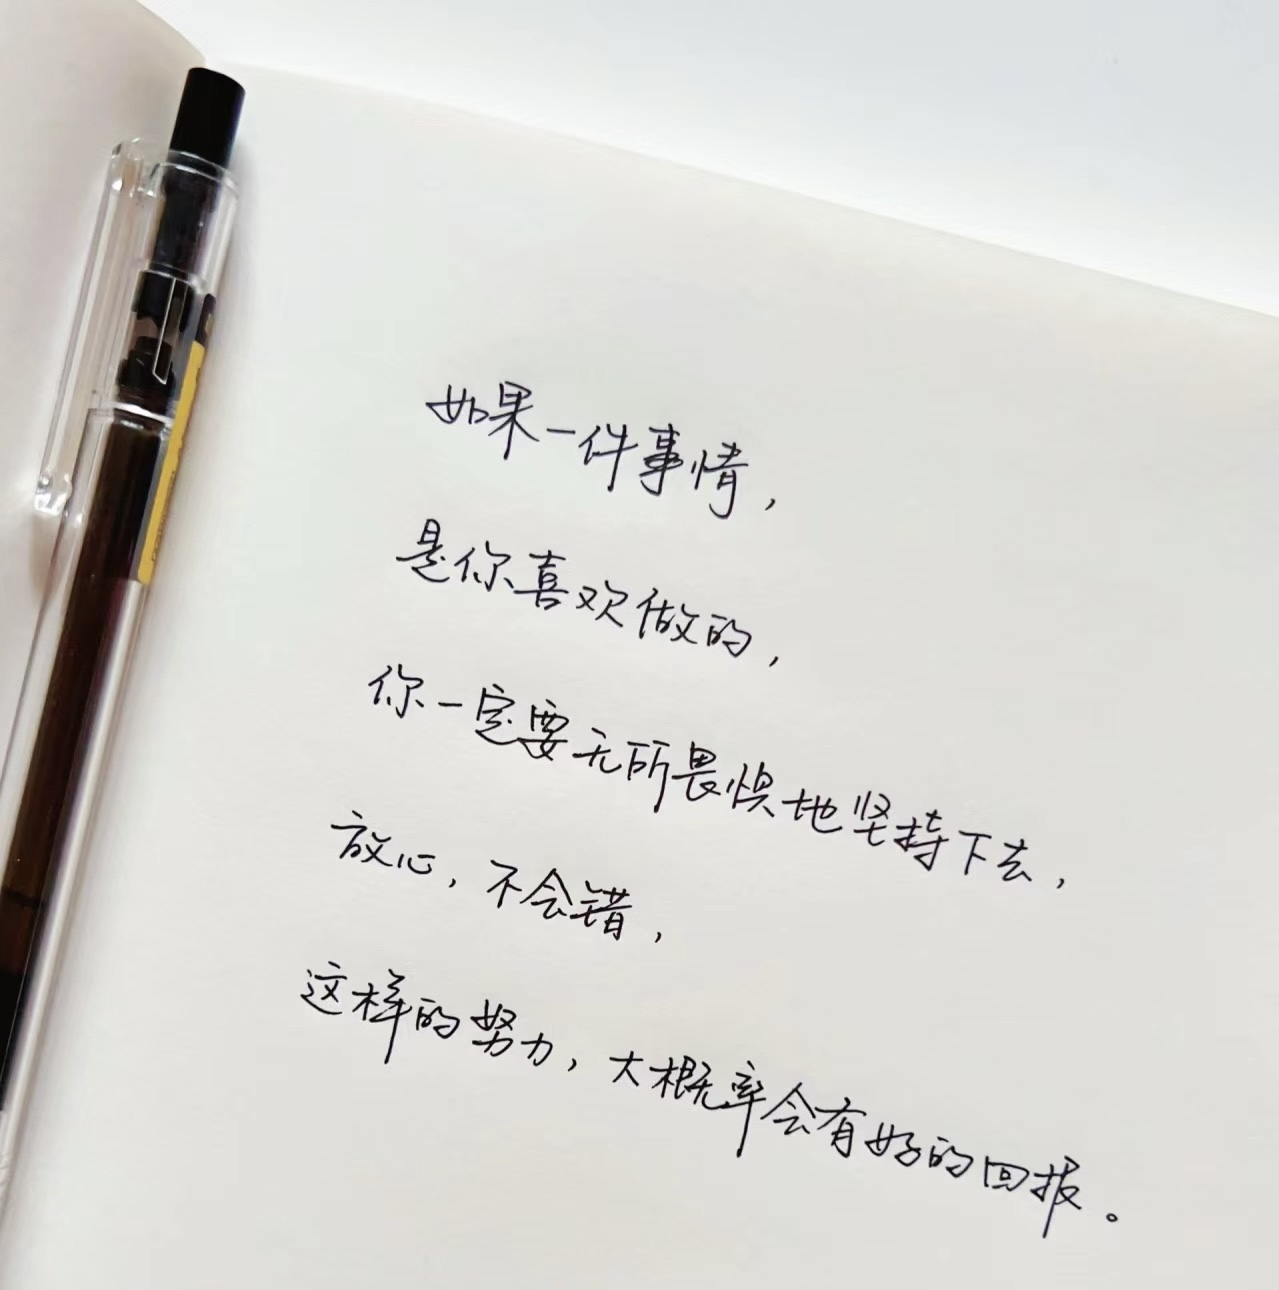 如果一件事情，
是你喜欢做的，
你一定要无所畏惧地坚持下去，
放心，不会错，
这样的努力，大概率会有好的回报。